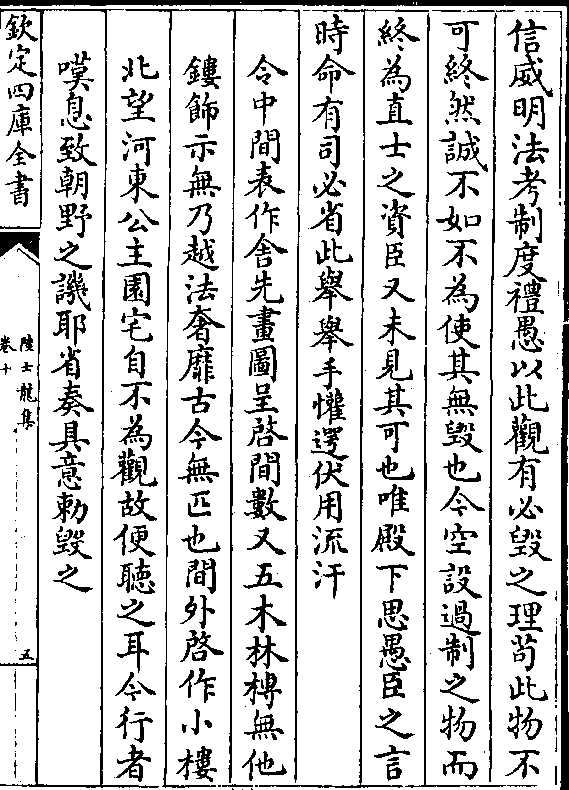 信威明法考制度禮愚以此觀有必毀之理茍此物不
可終然誠不如不為使其無毀也今空設過制之物而
終為直士之資臣又未見其可也唯殿下思愚臣之言
時命有司必省此舉舉手懼遌伏用流汗
令中間表作舍先畫圖呈啓間數又五木林榑無他
鏤飾示無乃越法奢靡古今無匹也間外啓作小樓
北望河東公主園宅自不為觀故便聽之耳今行者
嘆息致朝野之譏耶省奏具意勅毀之
欽定四庫全書
陸士龍集
卷十
五